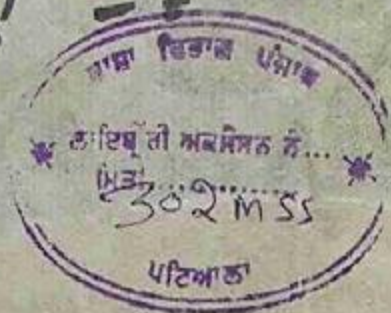 ਭਾਸ਼ਾ ਵਿਭਾਗ ਪੰਜਾਬ
ਲਾਇਬ੍ਰੇਰੀ ਅਕਸੈਸਨ ਨੰ...
ਮਿਤੀ............
302 MSS
ਪਟਿਆਲਾ